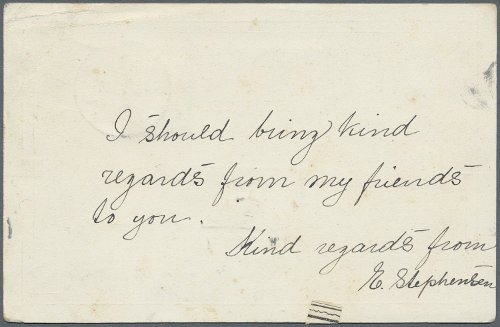 I should bring kind
regards from my friends
to you.
Kind regards from
E. Stephensen